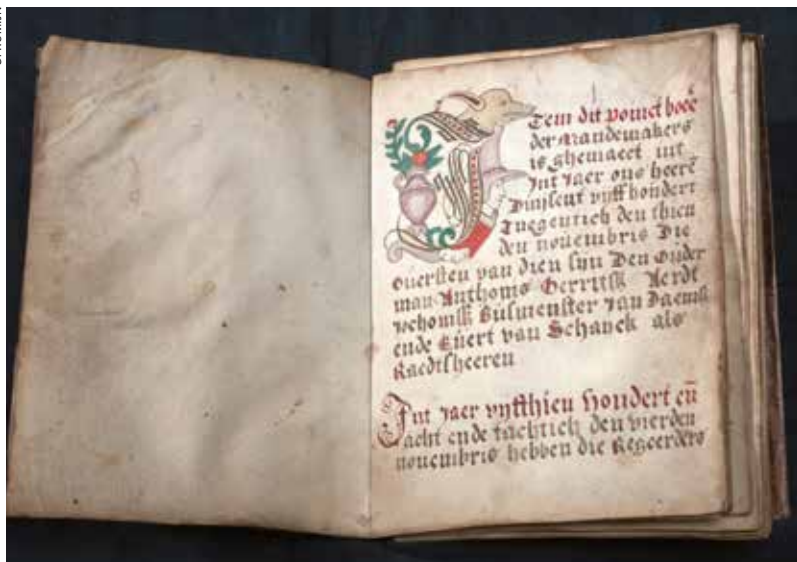 Item dit poinct boeē
der Mandemakers
is ghemaect int
Int Jaer ons heerē
Duijsent vyff hondert
tnegentich den thien
den nouembris Die
ouersten van dien syn Den ouder
man Anthonis Gerritsß Aerdt
Busmenster Jan Daemsß
ende Euert van Schayck als
Raedtsheeren
Int Jaer vyffthien hondert eñ
acht ende tachtich den vierden
nouembris hebben die Regeerders